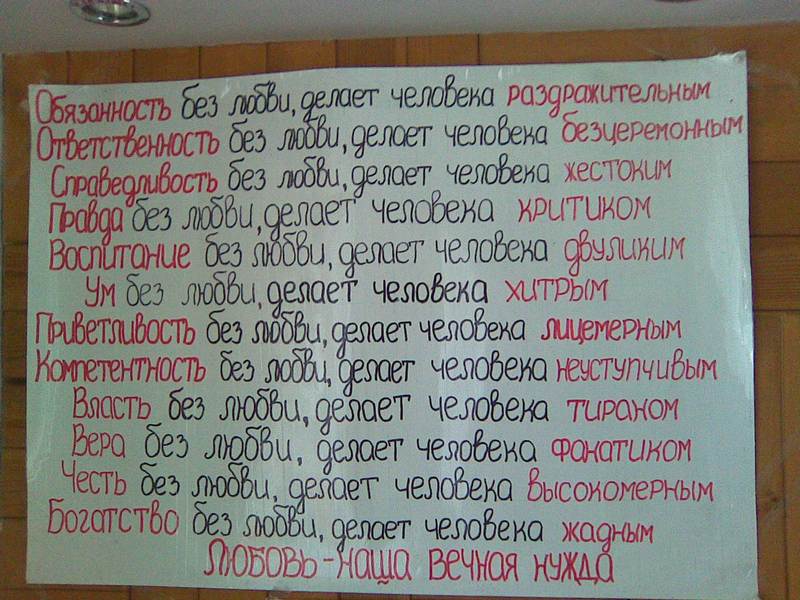 Обязанность без любви, делает человека раздражительным
Ответственность без любви, делает человека безцеремонным
Справедливость без любви, делает человека жестоким
Правда без любви, делает человека критиком
Воспитание без любви, делает человека двуликим
Ум без любви, делает человека хитрым
Приветливость без любви, делает человека лицемерным
Компетентность без любви, делает человека неуступчивым
Власть без любви, делает человека тираном
Вера без любви, делает человека фанатиком
Честь без любви, делает человека высокомерным
Богатство без любви, делает человека жадным
Любовь - наша вечная нужда